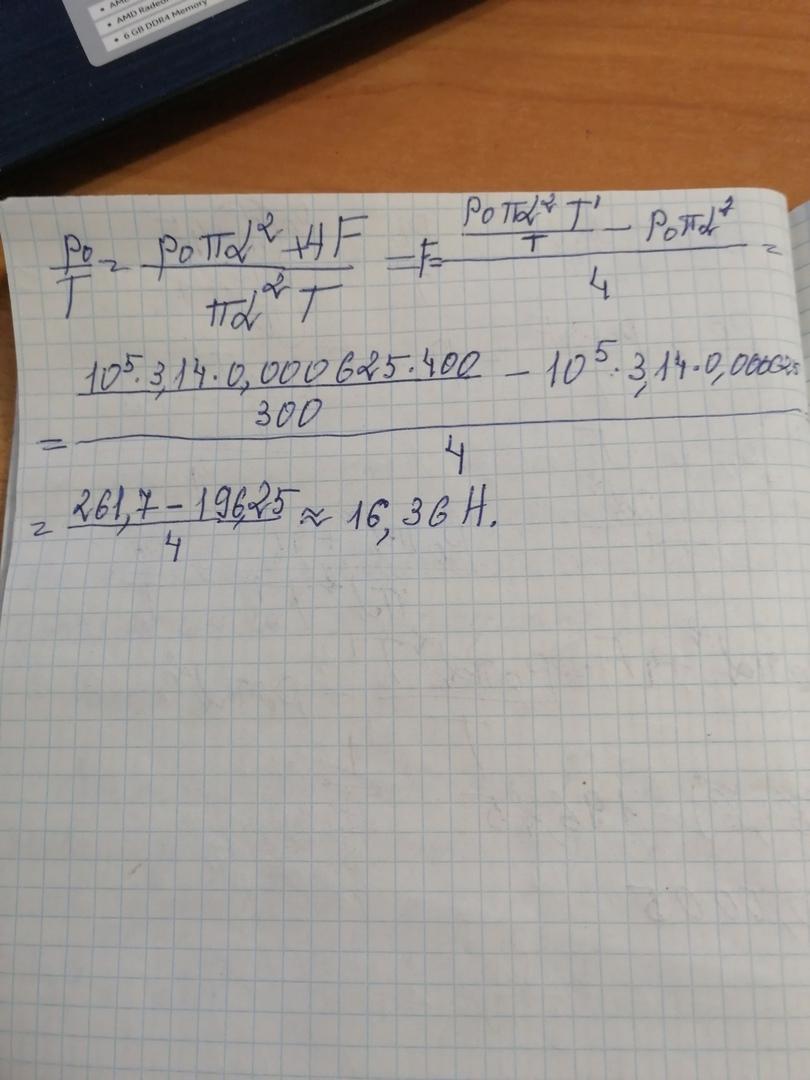 • AMD Radeon
• 6 GB DDR4 Memory
p₀/T = (p₀πd² + 4F)/(πd² T) = F = (p₀πd² T'/T − p₀πd²)/4 =
= (10⁵·3,14·0,000625·400/300 − 10⁵·3,14·0,000625)/4
= (261,7 − 196,25)/4 ≈ 16,36 Н.